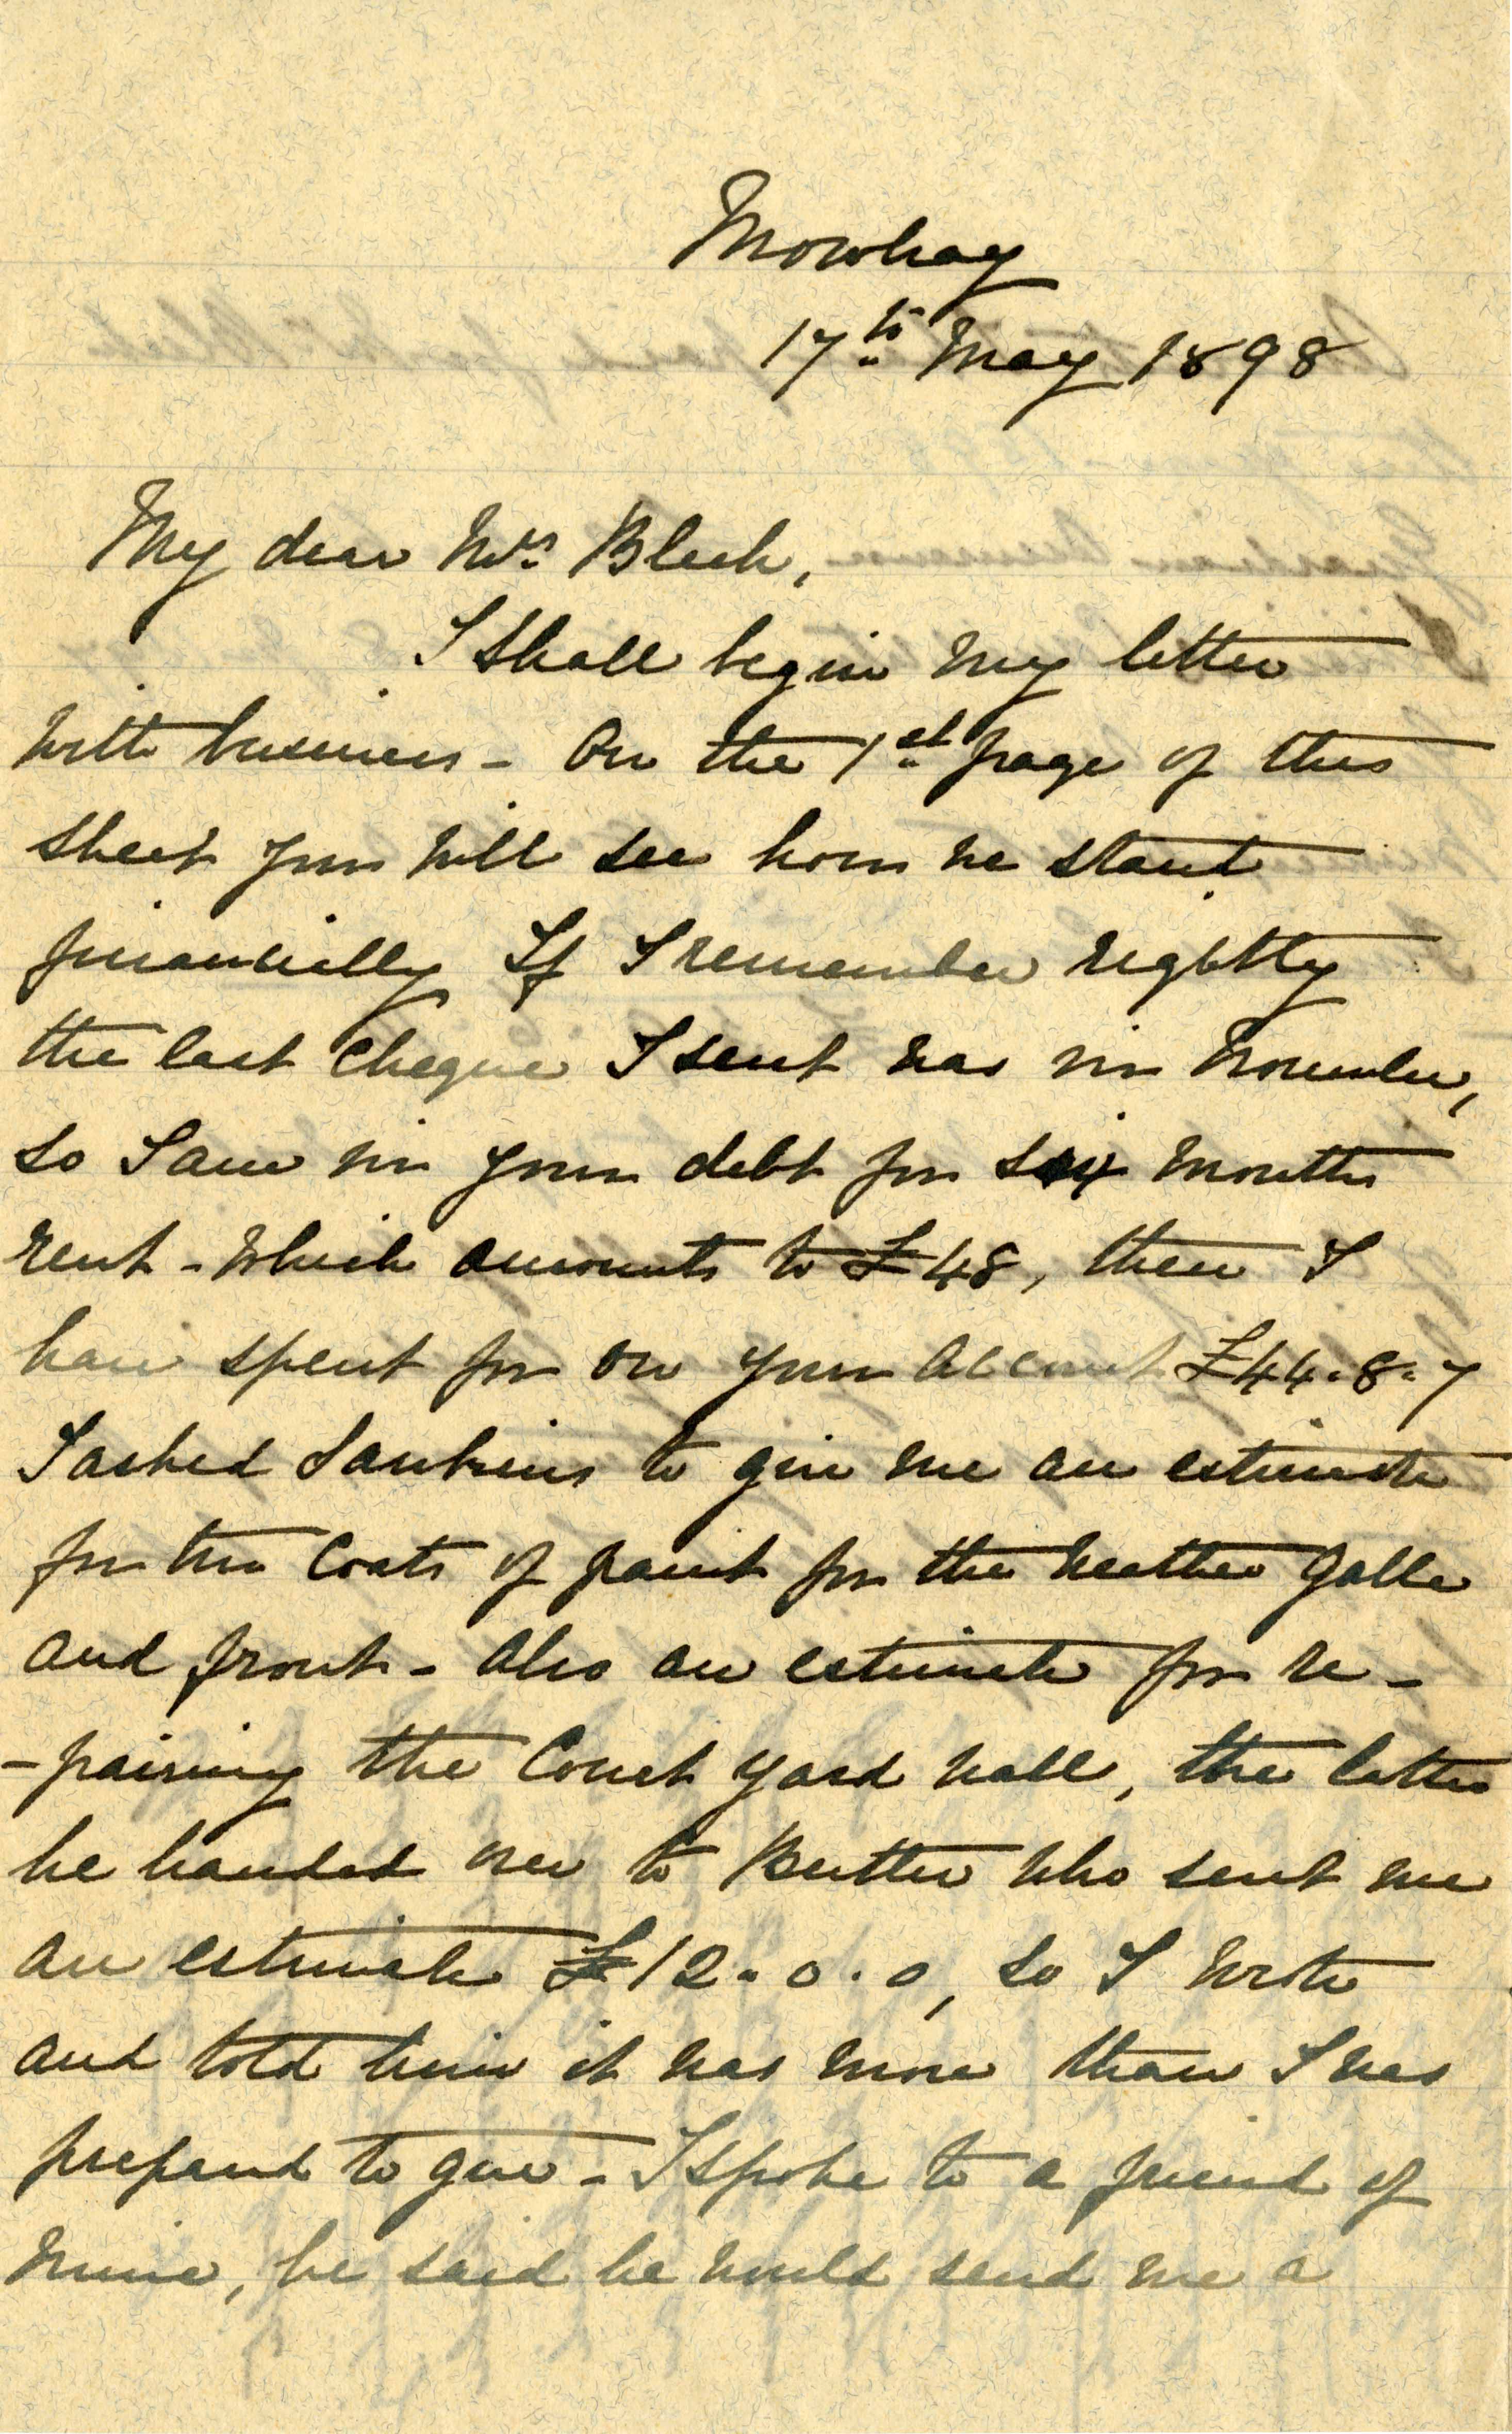 Mowhay
17th May 1898
My dear Mrs Bleek,
I shall begin my letter
with business - On the 1st page of this
sheet you will see how we stand
financially If I remember rightly
the last cheque I sent was in November,
so I am in your debt for six months
rent - which amounts to £48, then I
have spent for on your account £44.8.7
I asked Jankins to give me an estimate
for two coats of paint for the weather gable
and front - also an estimate for re-
-pairing the Court yard wall, the latter
he handed over to Butter who sent me
an estimate £12.0.0, so I wrote
and told him it was more than I was
prepared to give - I spoke to a friend of
mine, he said he would send me a